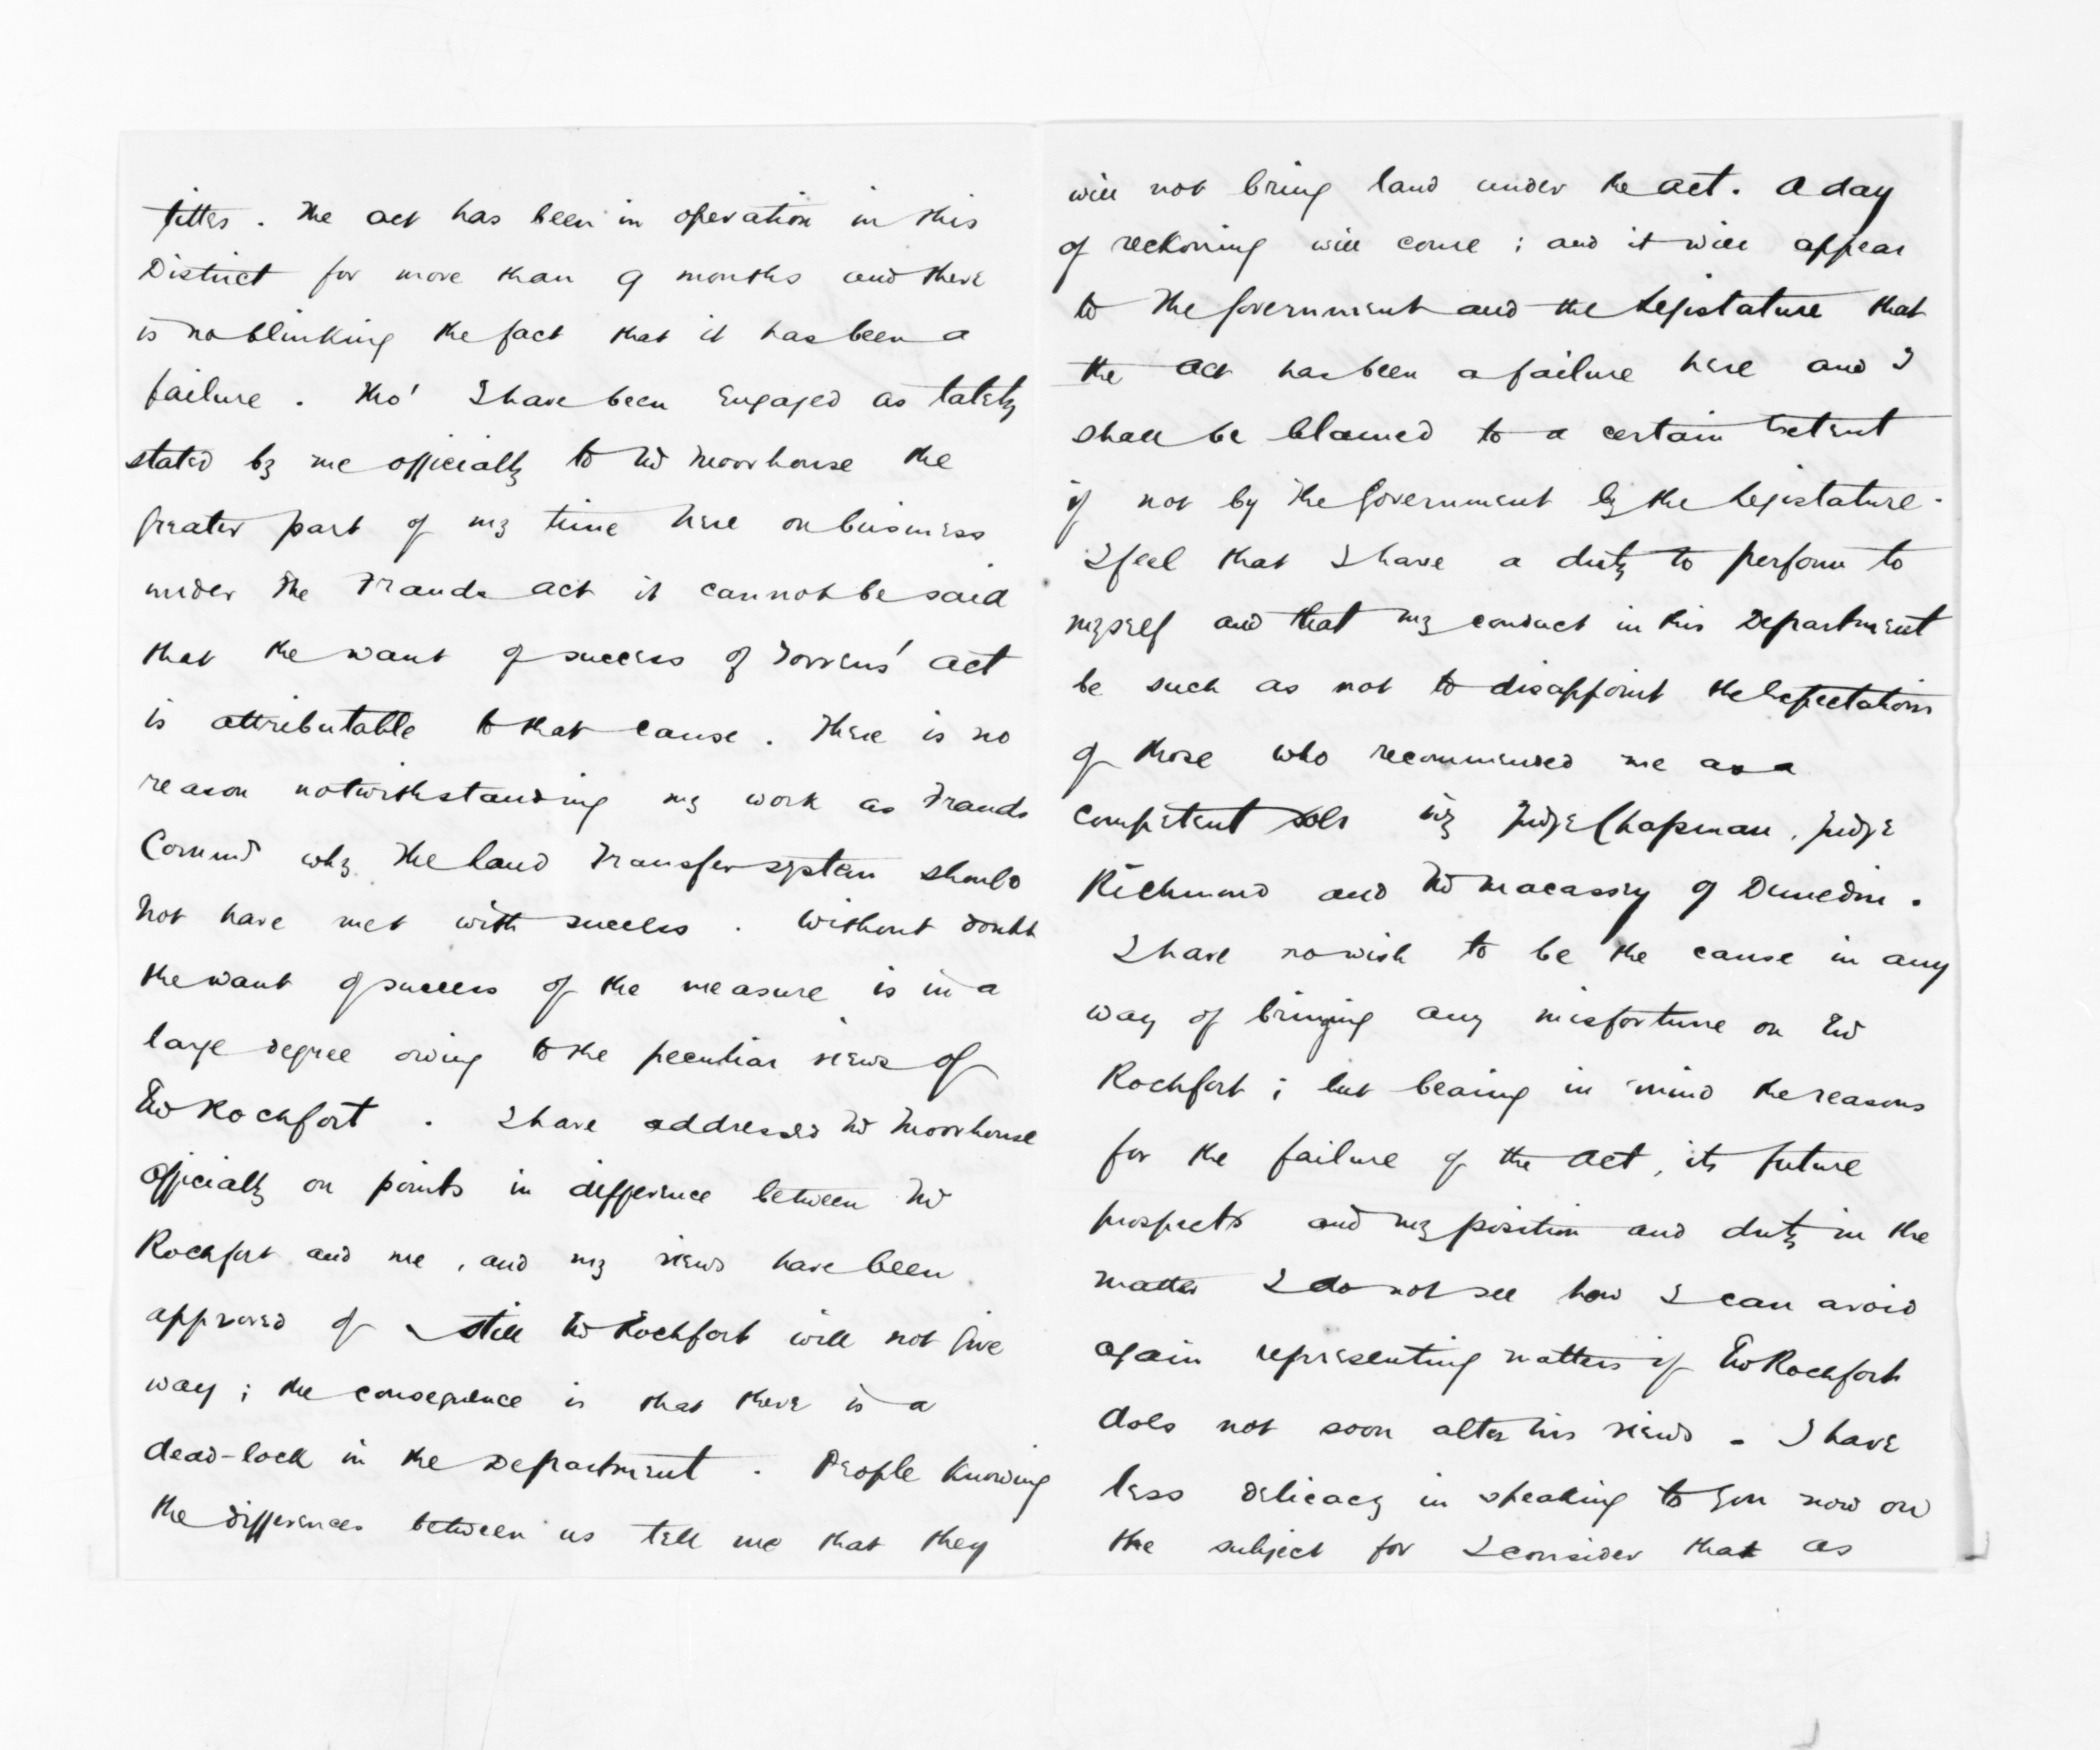 titles. The act has been in operation in this
District for more than 9 months and there
is no blinking the fact that it has been a
failure. Tho' I have been engaged as lately
stated by me officially to Mr Moorhouse the
greater part of my time here on business
under the Frauds Act it cannot be said
that the want of success of Torrens' Act
is attributable to that cause. There is no
reason notwithstanding my work as Frauds
Commr why the Land Transfer system should
not have met with success. Without doubt
the want of success of the measure is in a
large degree owing to the peculiar views of
Mr Rochfort. I have addressed Mr Moorhouse
officially on points in difference between Mr
Rochfort and me, and my views have been
approved of still Mr Rochfort will not give
way; the consequence is that there is a
dead-lock in the Department. People knowing
the differences between us tell me that they
will not bring land under the act. A day
of reckoning will come; and it will appear
to the Government and the Legislature that
the Act has been a failure here and I
shall be blamed to a certain extent
if not by the Government by the Legislature.
I feel that I have a duty to perform to
myself and that my conduct in this Department
be such as not to disappoint the expectations
of those who recommended me as a
competent solr viz Judge Chapman, Judge
Richmond and Mr Macassey of Dunedin.
I have no wish to be the cause in any
way of bringing any misfortune on Mr
Rochfort; but bearing in mind the reasons
for the failure of the Act, its future
prospects and my position and duty in the
matter I do not see how I can avoid
again representing matters if Mr Rochfort
does not soon alter his views. I have
less delicacy in speaking to you now on
the subject for I consider that as